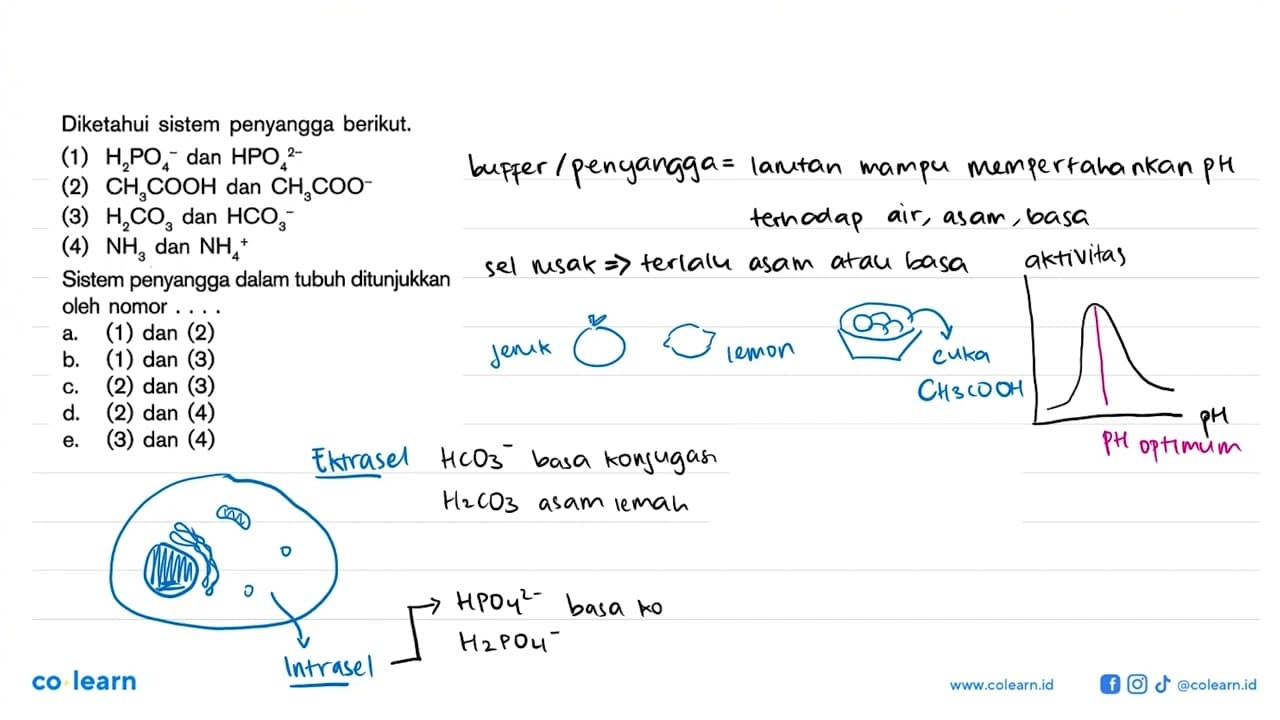 Diketahui sistem penyangga berikut.
(1) H₂PO₄⁻ dan HPO₄²⁻
(2) CH₃COOH dan CH₃COO⁻
(3) H₂CO₃ dan HCO₃⁻
(4) NH₃ dan NH₄⁺
Sistem penyangga dalam tubuh ditunjukkan
oleh nomor . . . .
a. (1) dan (2)
b. (1) dan (3)
c. (2) dan (3)
d. (2) dan (4)
e. (3) dan (4)
buffer/penyangga = larutan mampu mempertahankan pH
terhadap air, asam, basa
sel rusak => terlalu asam atau basa
jeruk
lemon
cuka
CH3COOH
aktivitas
pH
pH optimum
Ektrasel
HCO3⁻ basa konjugasi
H2CO3 asam lemah
Intrasel
HPO4²⁻ basa ko
H2PO4⁻
co learn
www.colearn.id
@colearn.id